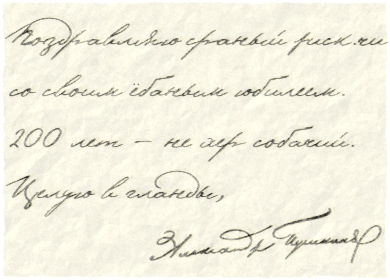 Поздравляю сраный риск.чи
со своим ёбаным юбилеем.
200 лет – не хер собачий.
Целую в гланды,
Александр Пушкин